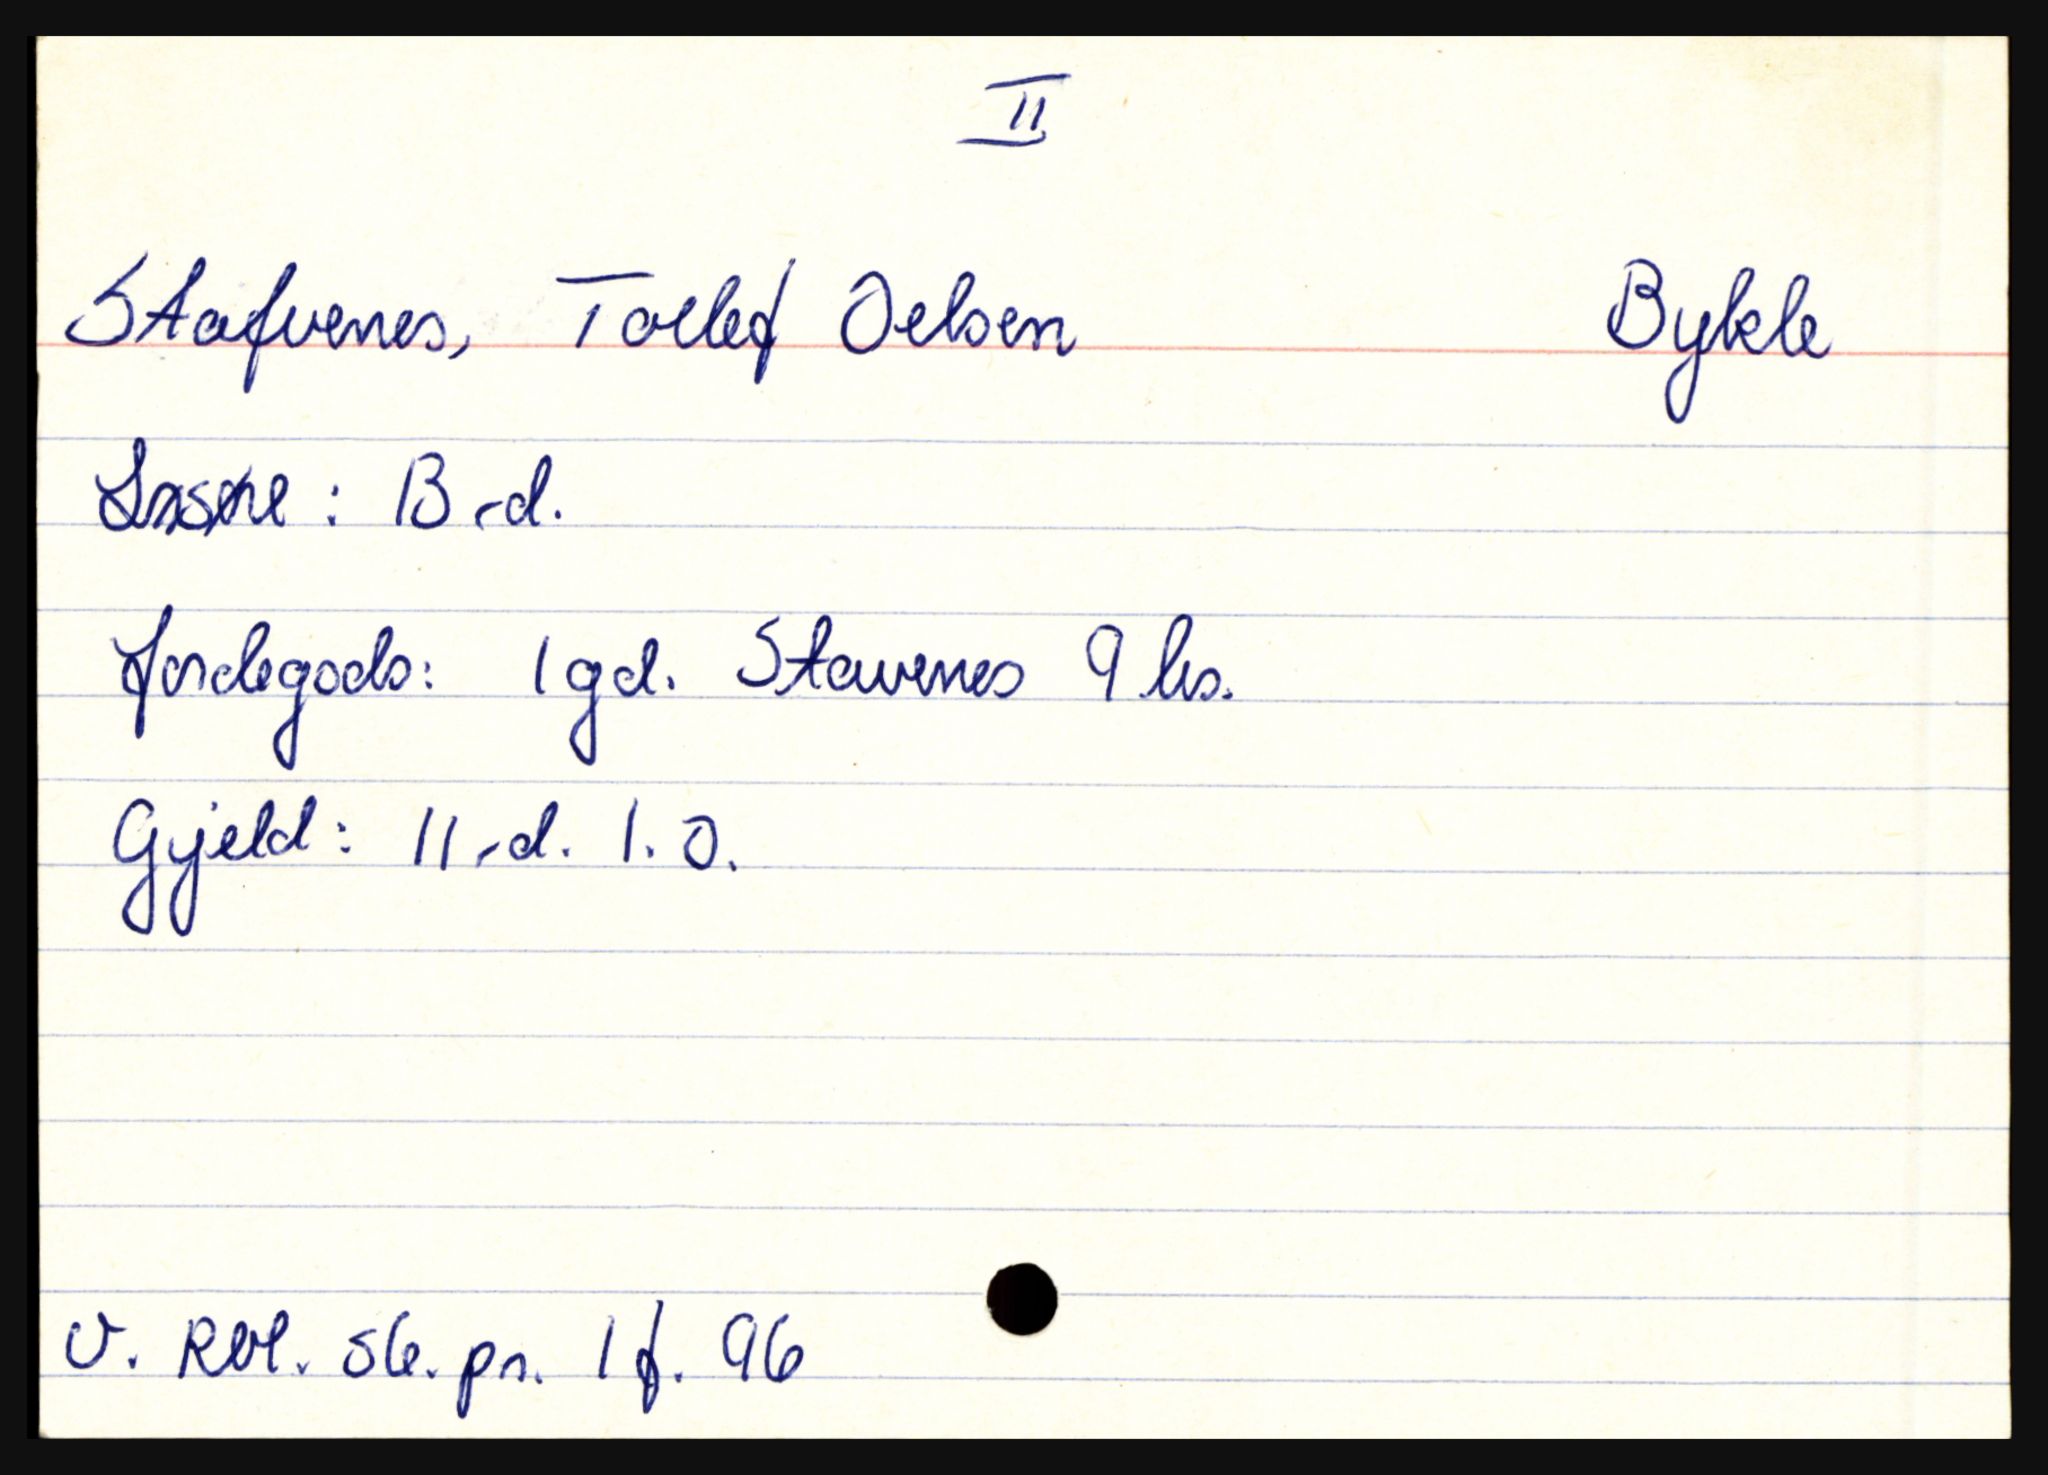 II
Stafvenes, Tollef Oelsen Bykle
Løsøre: 13 rd.
Jordegods: 1 gd. Stavenes 9 hs.
Gjeld: 11 rd. 1. 0.
V. Rbl. sk. pr. 1 f. 96